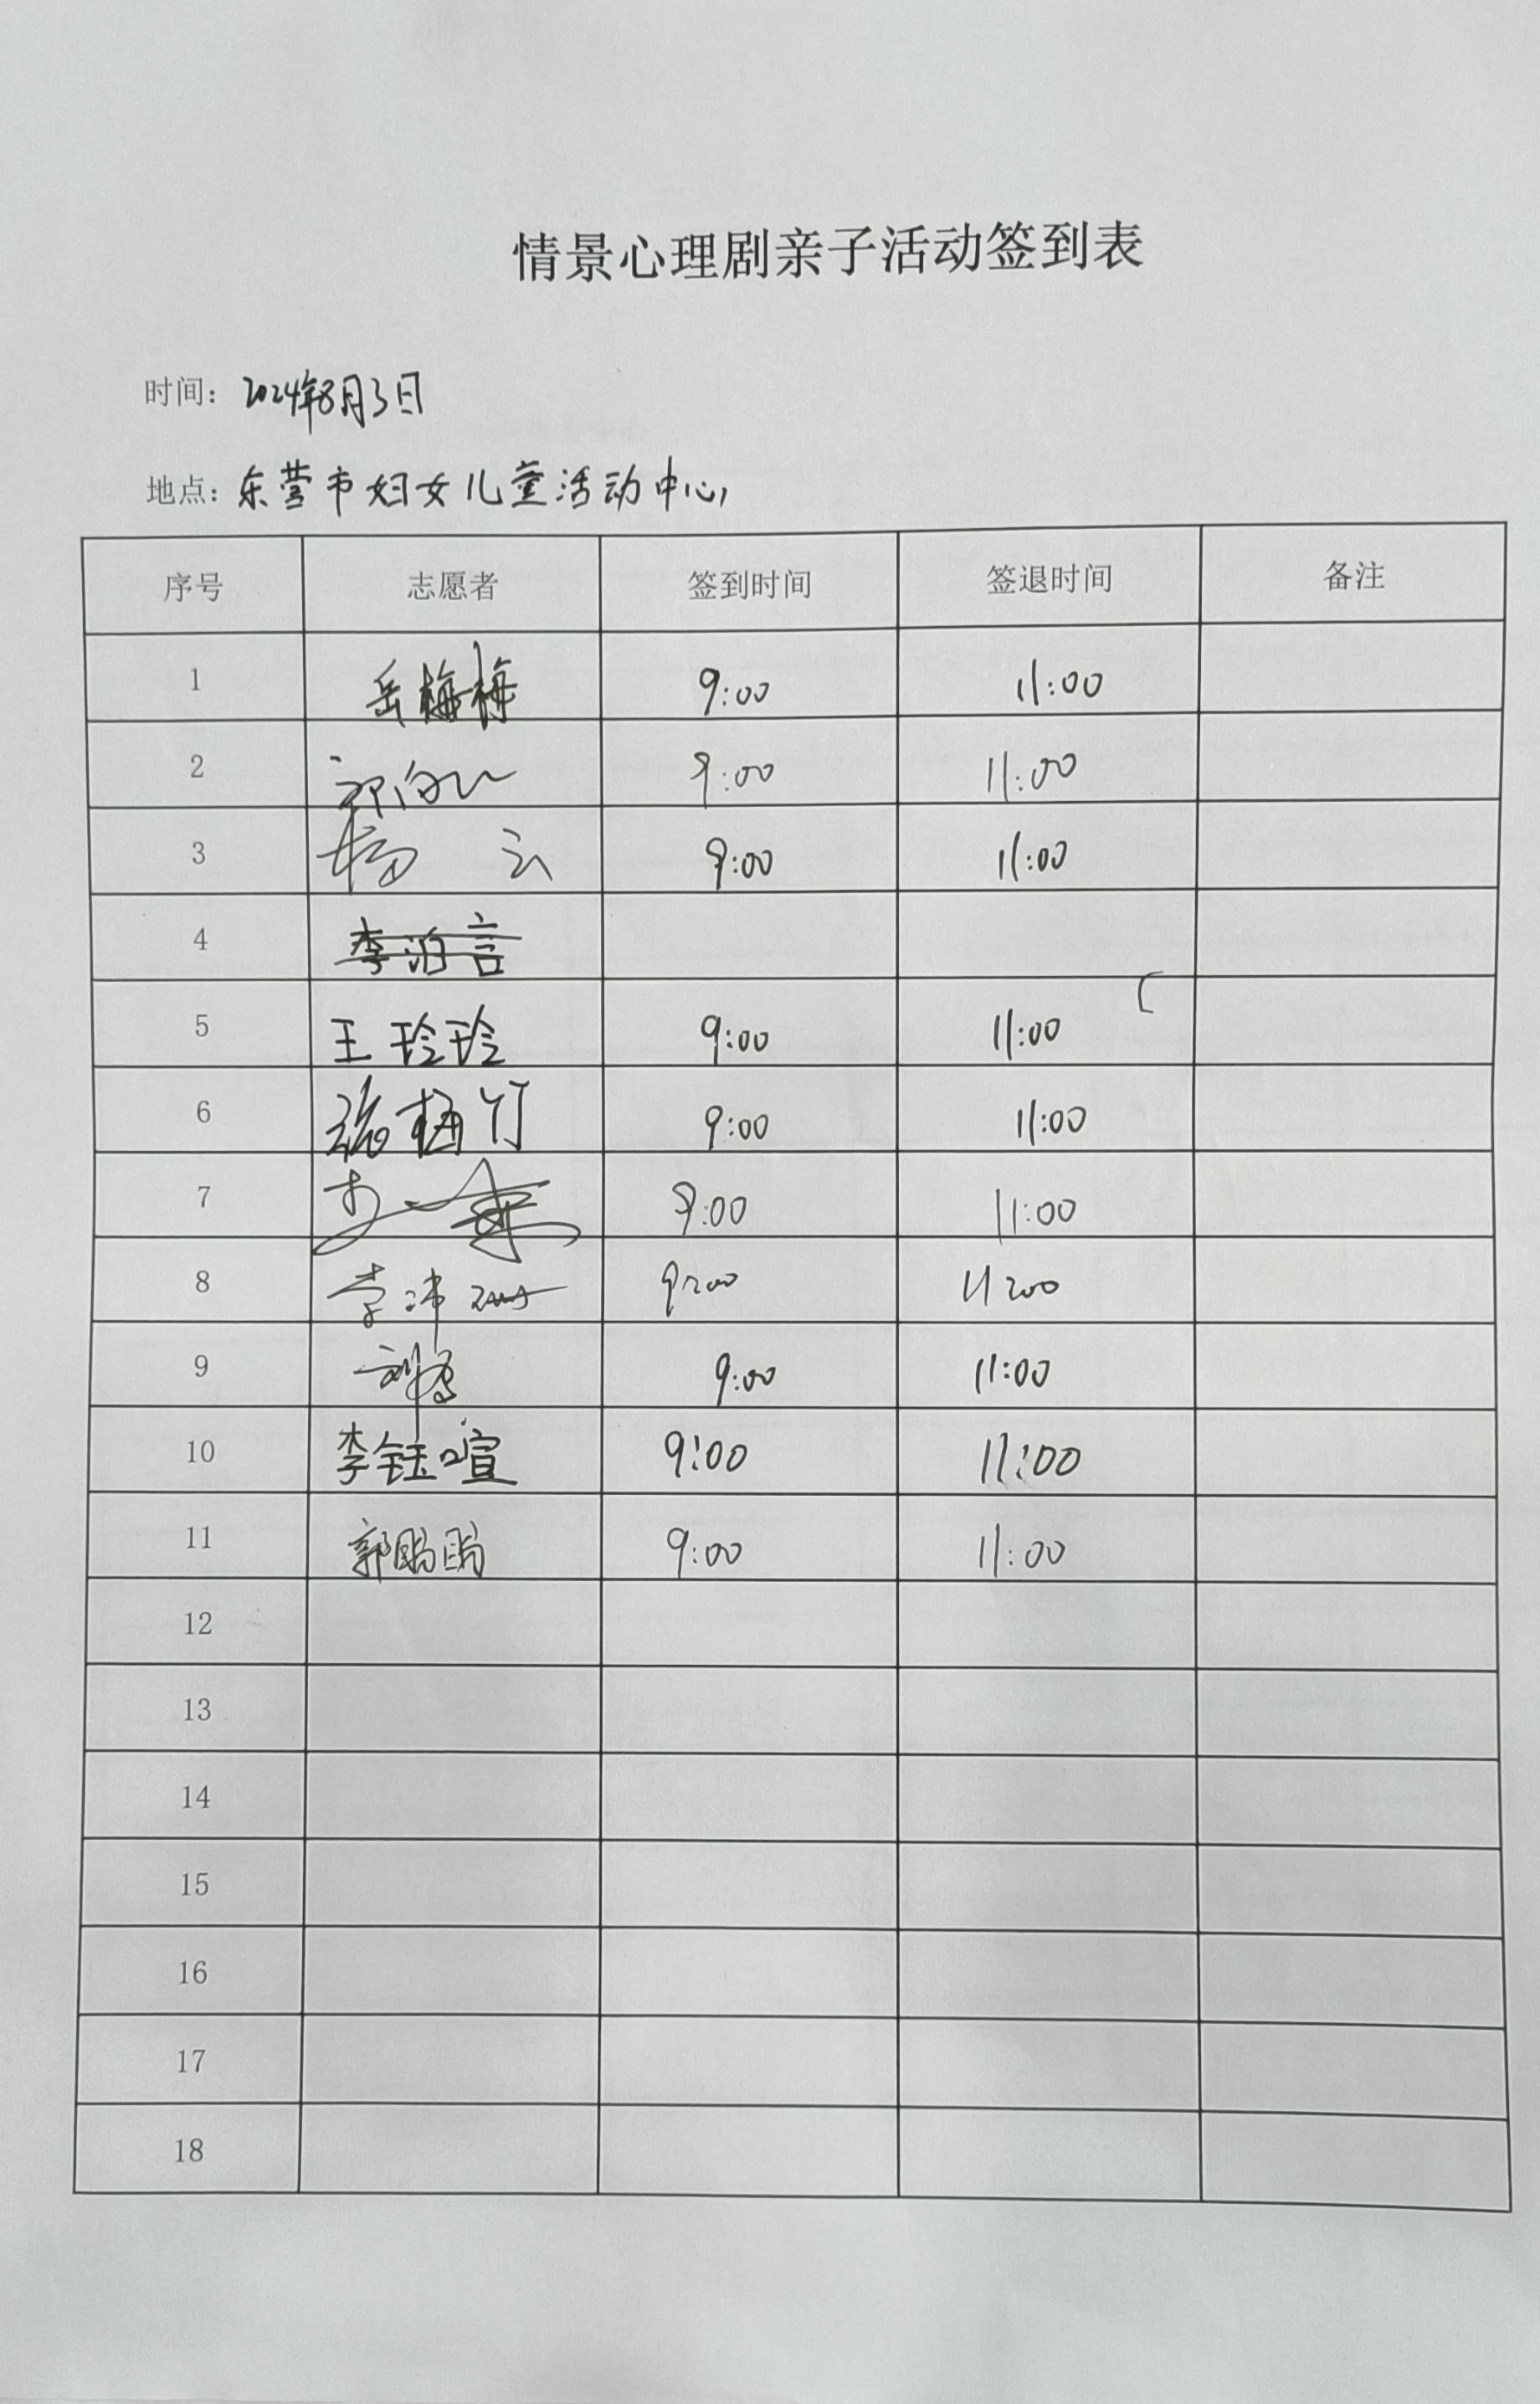 情景心理剧亲子活动签到表
时间：2024年8月3日
地点：东营市妇女儿童活动中心
序号 志愿者 签到时间 签退时间 备注
1 岳梅梅 9:00 11:00
2 9:00 11:00
3 杨云 9:00 11:00
4 李泊言
5 王玲玲 9:00 11:00
6 张梅竹 9:00 11:00
7 9:00 11:00
8 李沛 9:00 11:00
9 9:00 11:00
10 李钰喧 9:00 11:00
11 郭鹏鹏 9:00 11:00
12
13
14
15
16
17
18